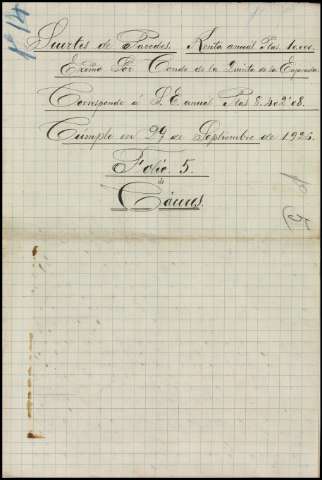 nº 14
Suertes de Paredes. Renta annual Ptas
Exmo Sor Conde de la Quinta de la Enjarada
Corresponde á S. E. annual Ptas 8.402'08.
Cumple en 29 de Septiembre de 1926.
Folio 5.
de
5